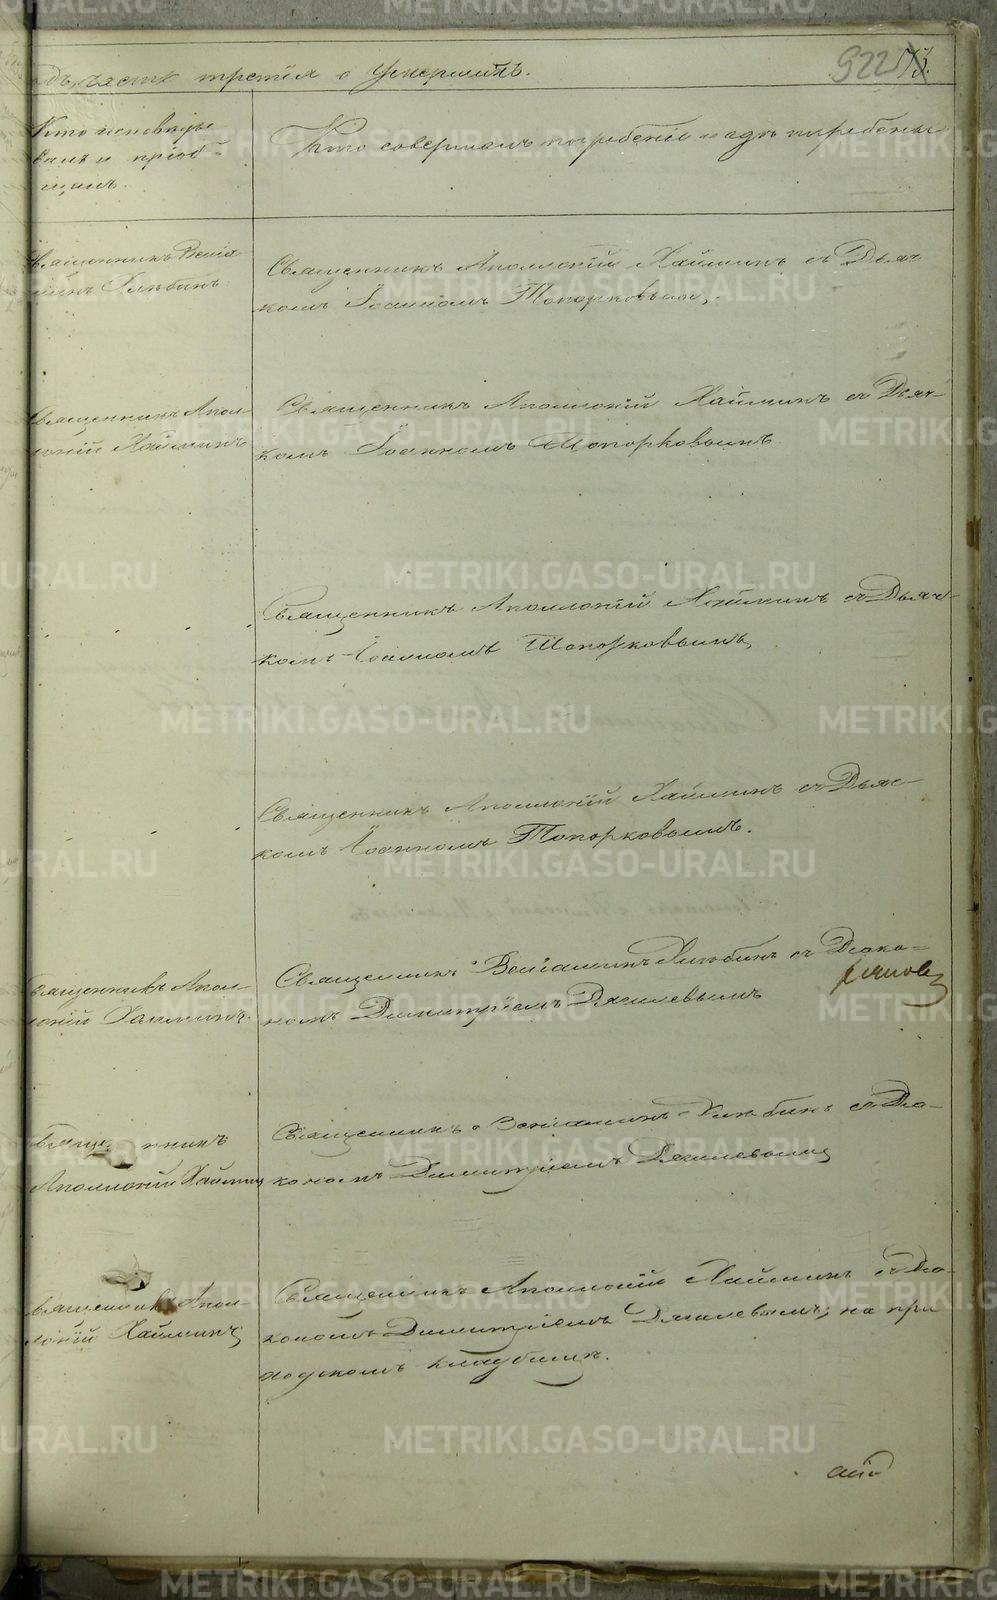 одъ, часть третія о умершихъ.
922
73.
Кто исповѣды
валъ и пріоб-
щалъ.
Кто совершалъ погребеніе и гдѣ погребены
Священникъ Веніа
минъ Хлѣбинъ
Священникъ Аполлоній Хайминъ съ Дьяч
комъ Іоанномъ Топорковымъ,
Священникъ Апол-
лоній Хайминъ
Священникъ Аполлоній Хайминъ съ Дьяч-
комъ Іоанномъ Топорковымъ
Священникъ Аполлоній Хайминъ съ Дьяч-
комъ Іоанномъ Топорковымъ
Священникъ Аполлоній Хайминъ съ Дьяч-
комъ Іоанномъ Топорковымъ.
Священникъ Апол-
лоній Хайминъ.
Священникъ Веніаминъ Хлѣбинъ съ Діако-
номъ Димитріемъ Дягилевымъ
Священникъ
Аполлоній Хайминъ
Священникъ Веніаминъ Хлѣбинъ съ Діа-
кономъ Димитріемъ Дягилевымъ
Священникъ Апол-
лоній Хайминъ
Священникъ Аполлоній Хайминъ съ Діа-
кономъ Димитріемъ Дягилевымъ, на при
ходскомъ кладбищѣ.
METRIKI.GASO-URAL.RU